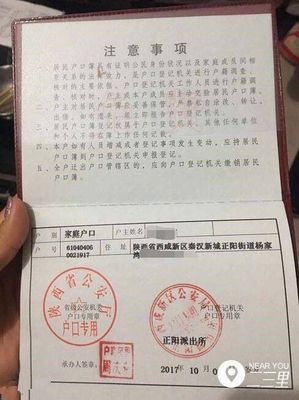 注意事项
一、居民户口簿具有证明公民身份状况以及家庭成员间相
互关系的法律效力，是户口登记机关进行户籍调查、
核对的主要依据。户口登记机关工作人员进行户籍调
查、核对时，户主或本户成员应主动交验居民户口簿。
二、户主对居民户口簿应妥善保管，严禁私自涂改、转让、
出借。如有遗失，应及时报告户口登记机关。
三、居民户口簿登记权属于户口登记机关，其他任何单位
和个人不得在簿上作任何记载。
四、本户如有人员增减或者登记事项发生变动，应持居民
户口簿到户口登记机关申报登记。
五、全户迁出户口管辖区的，应向户口登记机关缴销居民
户口簿。
户别 家庭户口 户主姓名
户号 61040406 0021917 住址 陕西省西咸新区秦汉新城正阳街道杨家
湾
陕西省公安厅
户口专用
省级公安机关
户口专用章
户口登记机关
户口专用章
正阳派出所
承办人签章：
2017 10
NEAR YOU
二三里